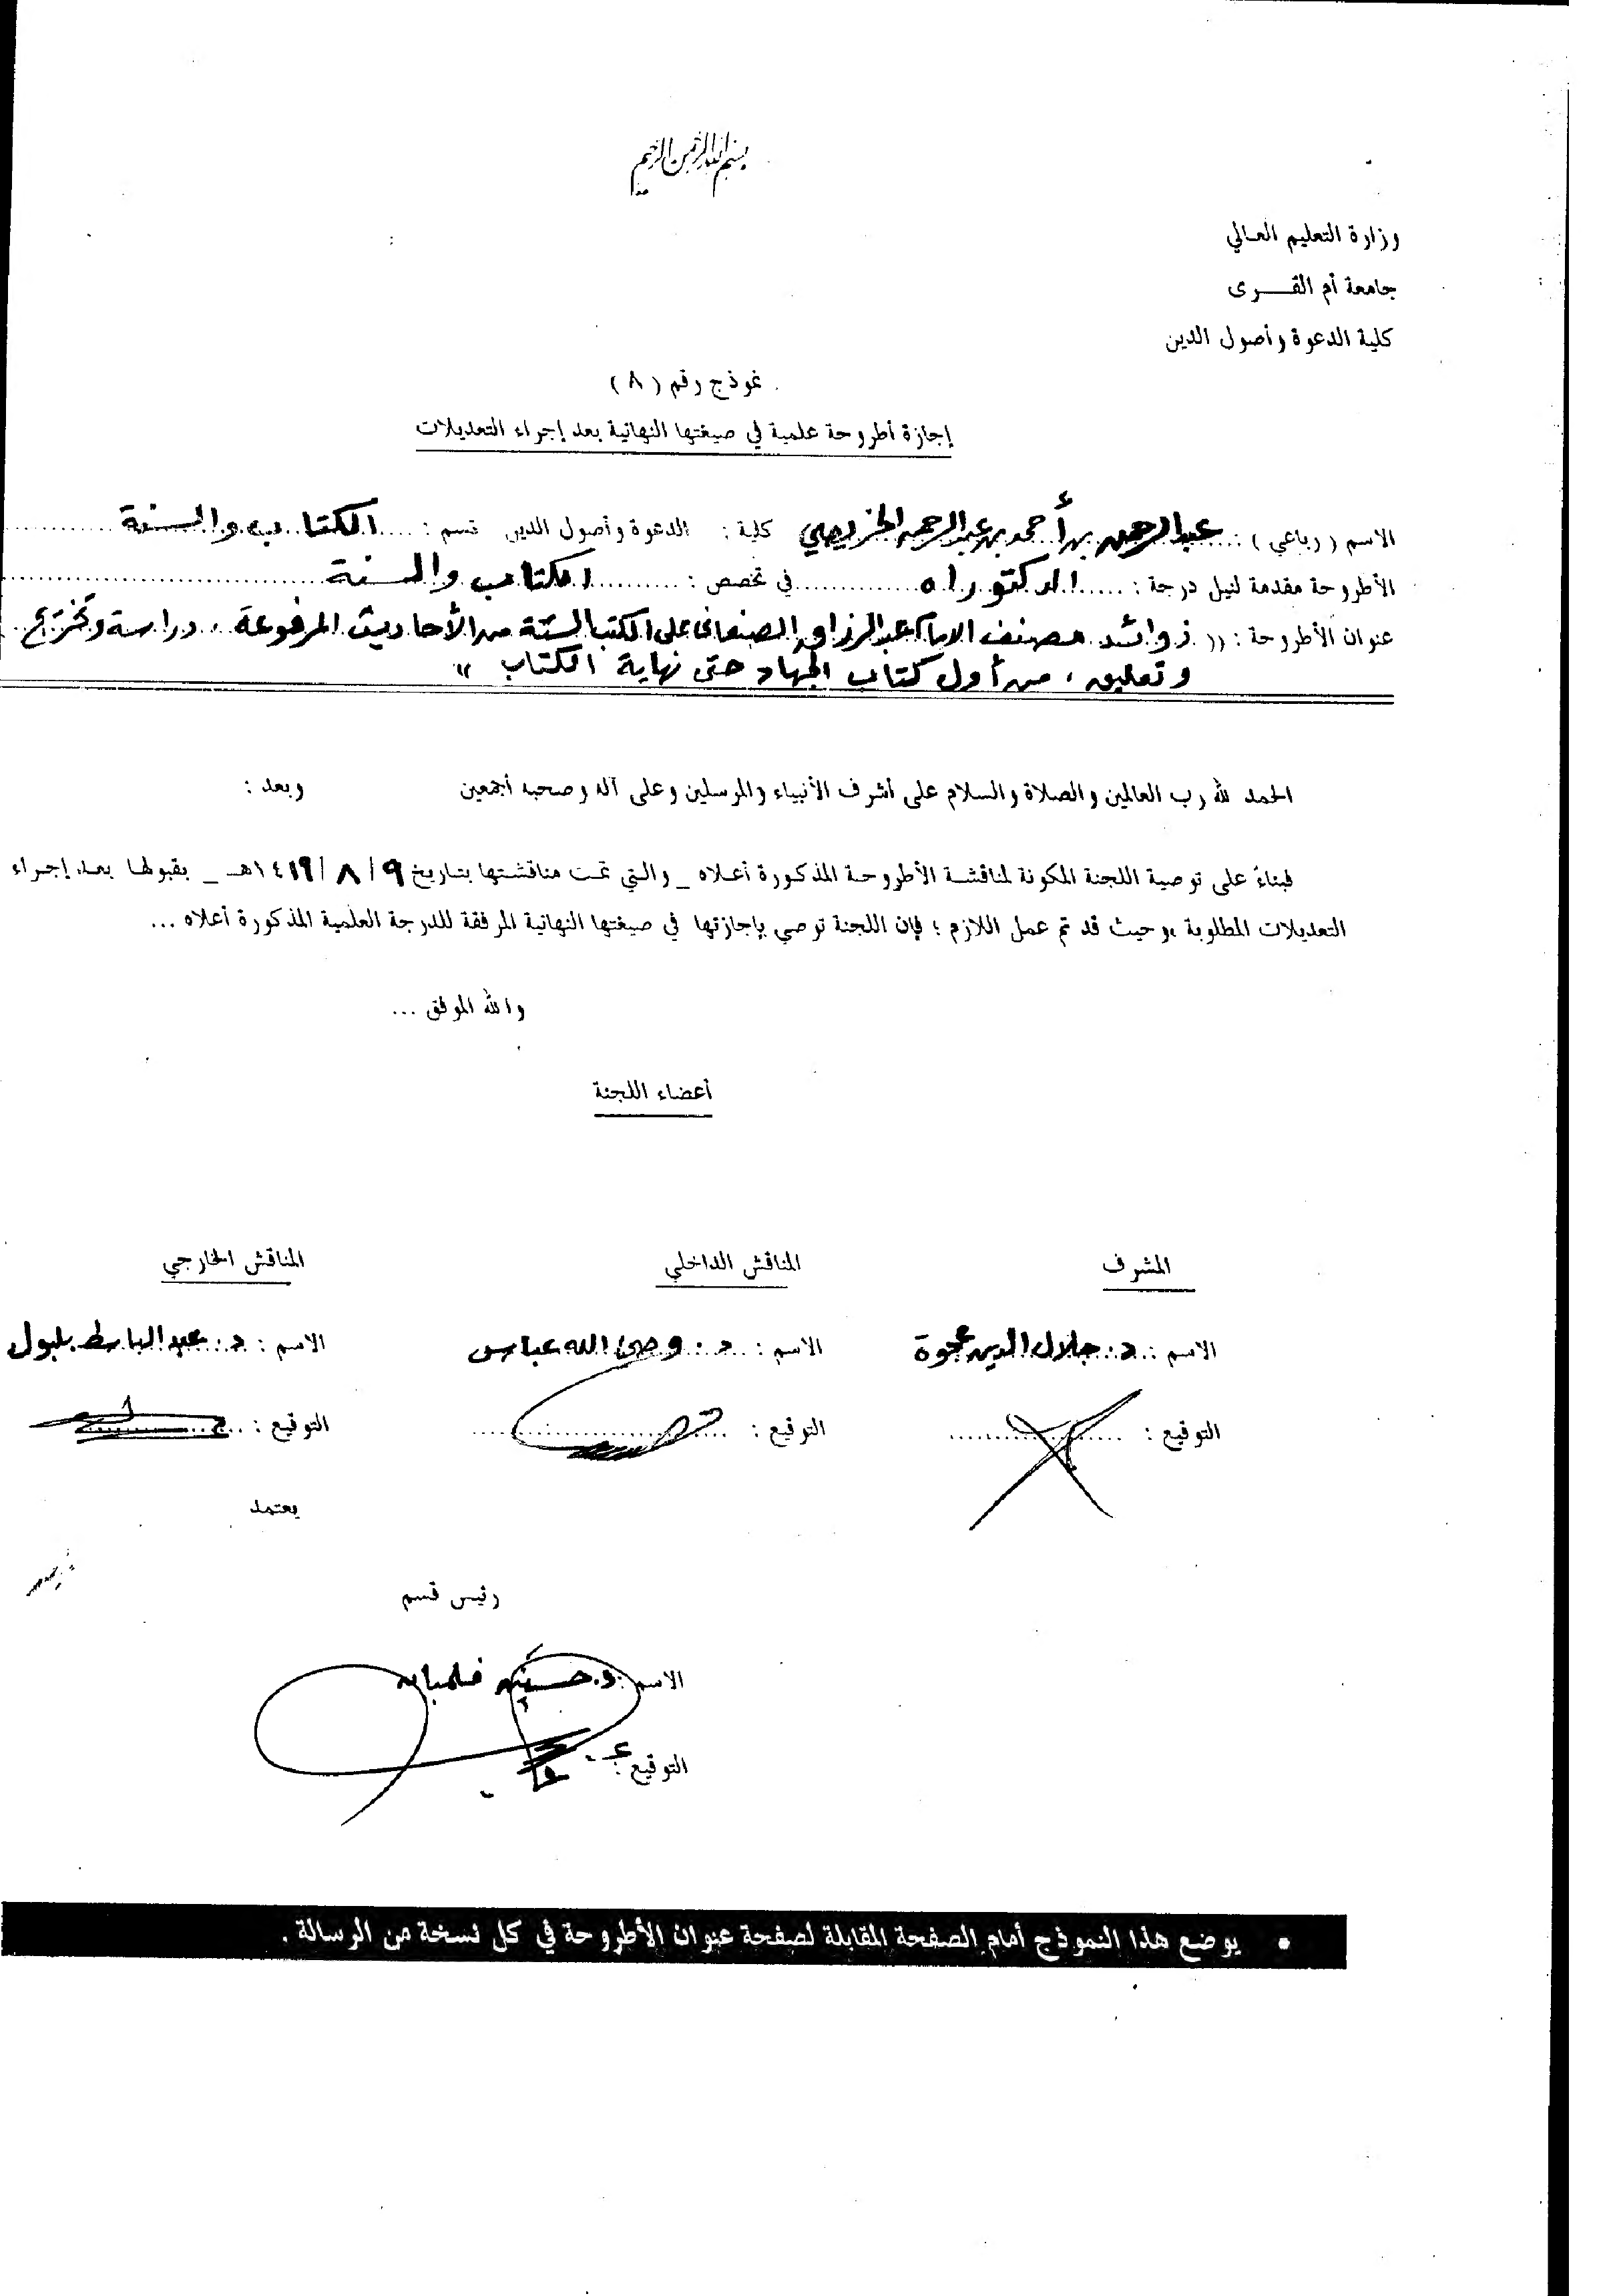 بسم الله الرحمن الرحيم
وزارة التعليم العالي
جامعة أم القـــرى
كلية الدعوة وأصول الدين
نموذج رقم ( ٨ )
إجازة أطروحة علمية في صيغتها النهائية بعد إجراء التعديلات
الاسم ( رباعي ) : عبدالرحمن بن أحمد بن عبدالرحمن الخريصي كلية : الدعوة وأصول الدين قسم : الكتاب والسنة
الأطروحة مقدمة لنيل درجة : الدكتوراه في تخصص : الكتاب والسنة
عنوان الأطروحة : (( زوائد مصنف الإمام عبدالرزاق الصنعاني على الكتب الستة من الأحاديث المرفوعة ، دراسة وتخريج
وتعليق ، من أول كتاب الجهاد حتى نهاية الكتاب ))
الحمد لله رب العالمين والصلاة والسلام على أشرف الأنبياء والمرسلين وعلى آله وصحبه أجمعين وبعد :
فبناءً على توصية اللجنة المكونة لمناقشة الأطروحة المذكورة أعلاه _ والتي تمت مناقشتها بتاريخ ٩ / ٨ / ١٤١٩هـ _ بقبولها بعد إجراء
التعديلات المطلوبة ،وحيث قد تم عمل اللازم ؛ فإن اللجنة توصي بإجازتها في صيغتها النهائية المرفقة للدرجة العلمية المذكورة أعلاه ...
والله الموفق ...
أعضاء اللجنة
المشرف المناقش الداخلي المناقش الخارجي
الاسم : د. جلال الدين عجوة الاسم : د. وصي الله عباس الاسم : د. عبدالباسط بلبول
التوقيع : التوقيع : التوقيع :
يعتمد
رئيس قسم
الاسم : د. حسين فلمبان
التوقيع :
• يوضع هذا النموذج أمام الصفحة المقابلة لصفحة عنوان الأطروحة في كل نسخة من الرسالة .